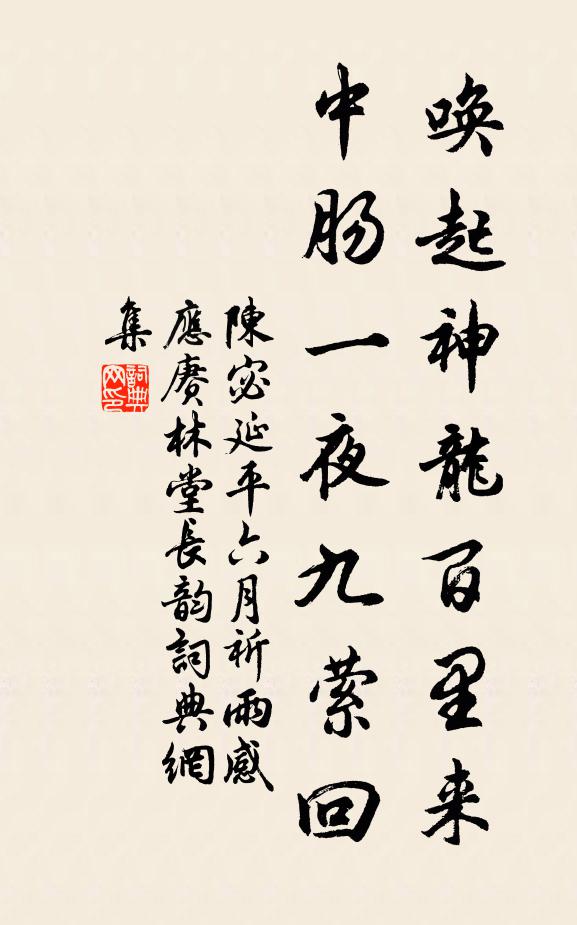 唤起神龍百里来
中肠一夜九萦回
陳宓延平六月祈雨感
應赓林堂長韵詞典網
集
詞典网印